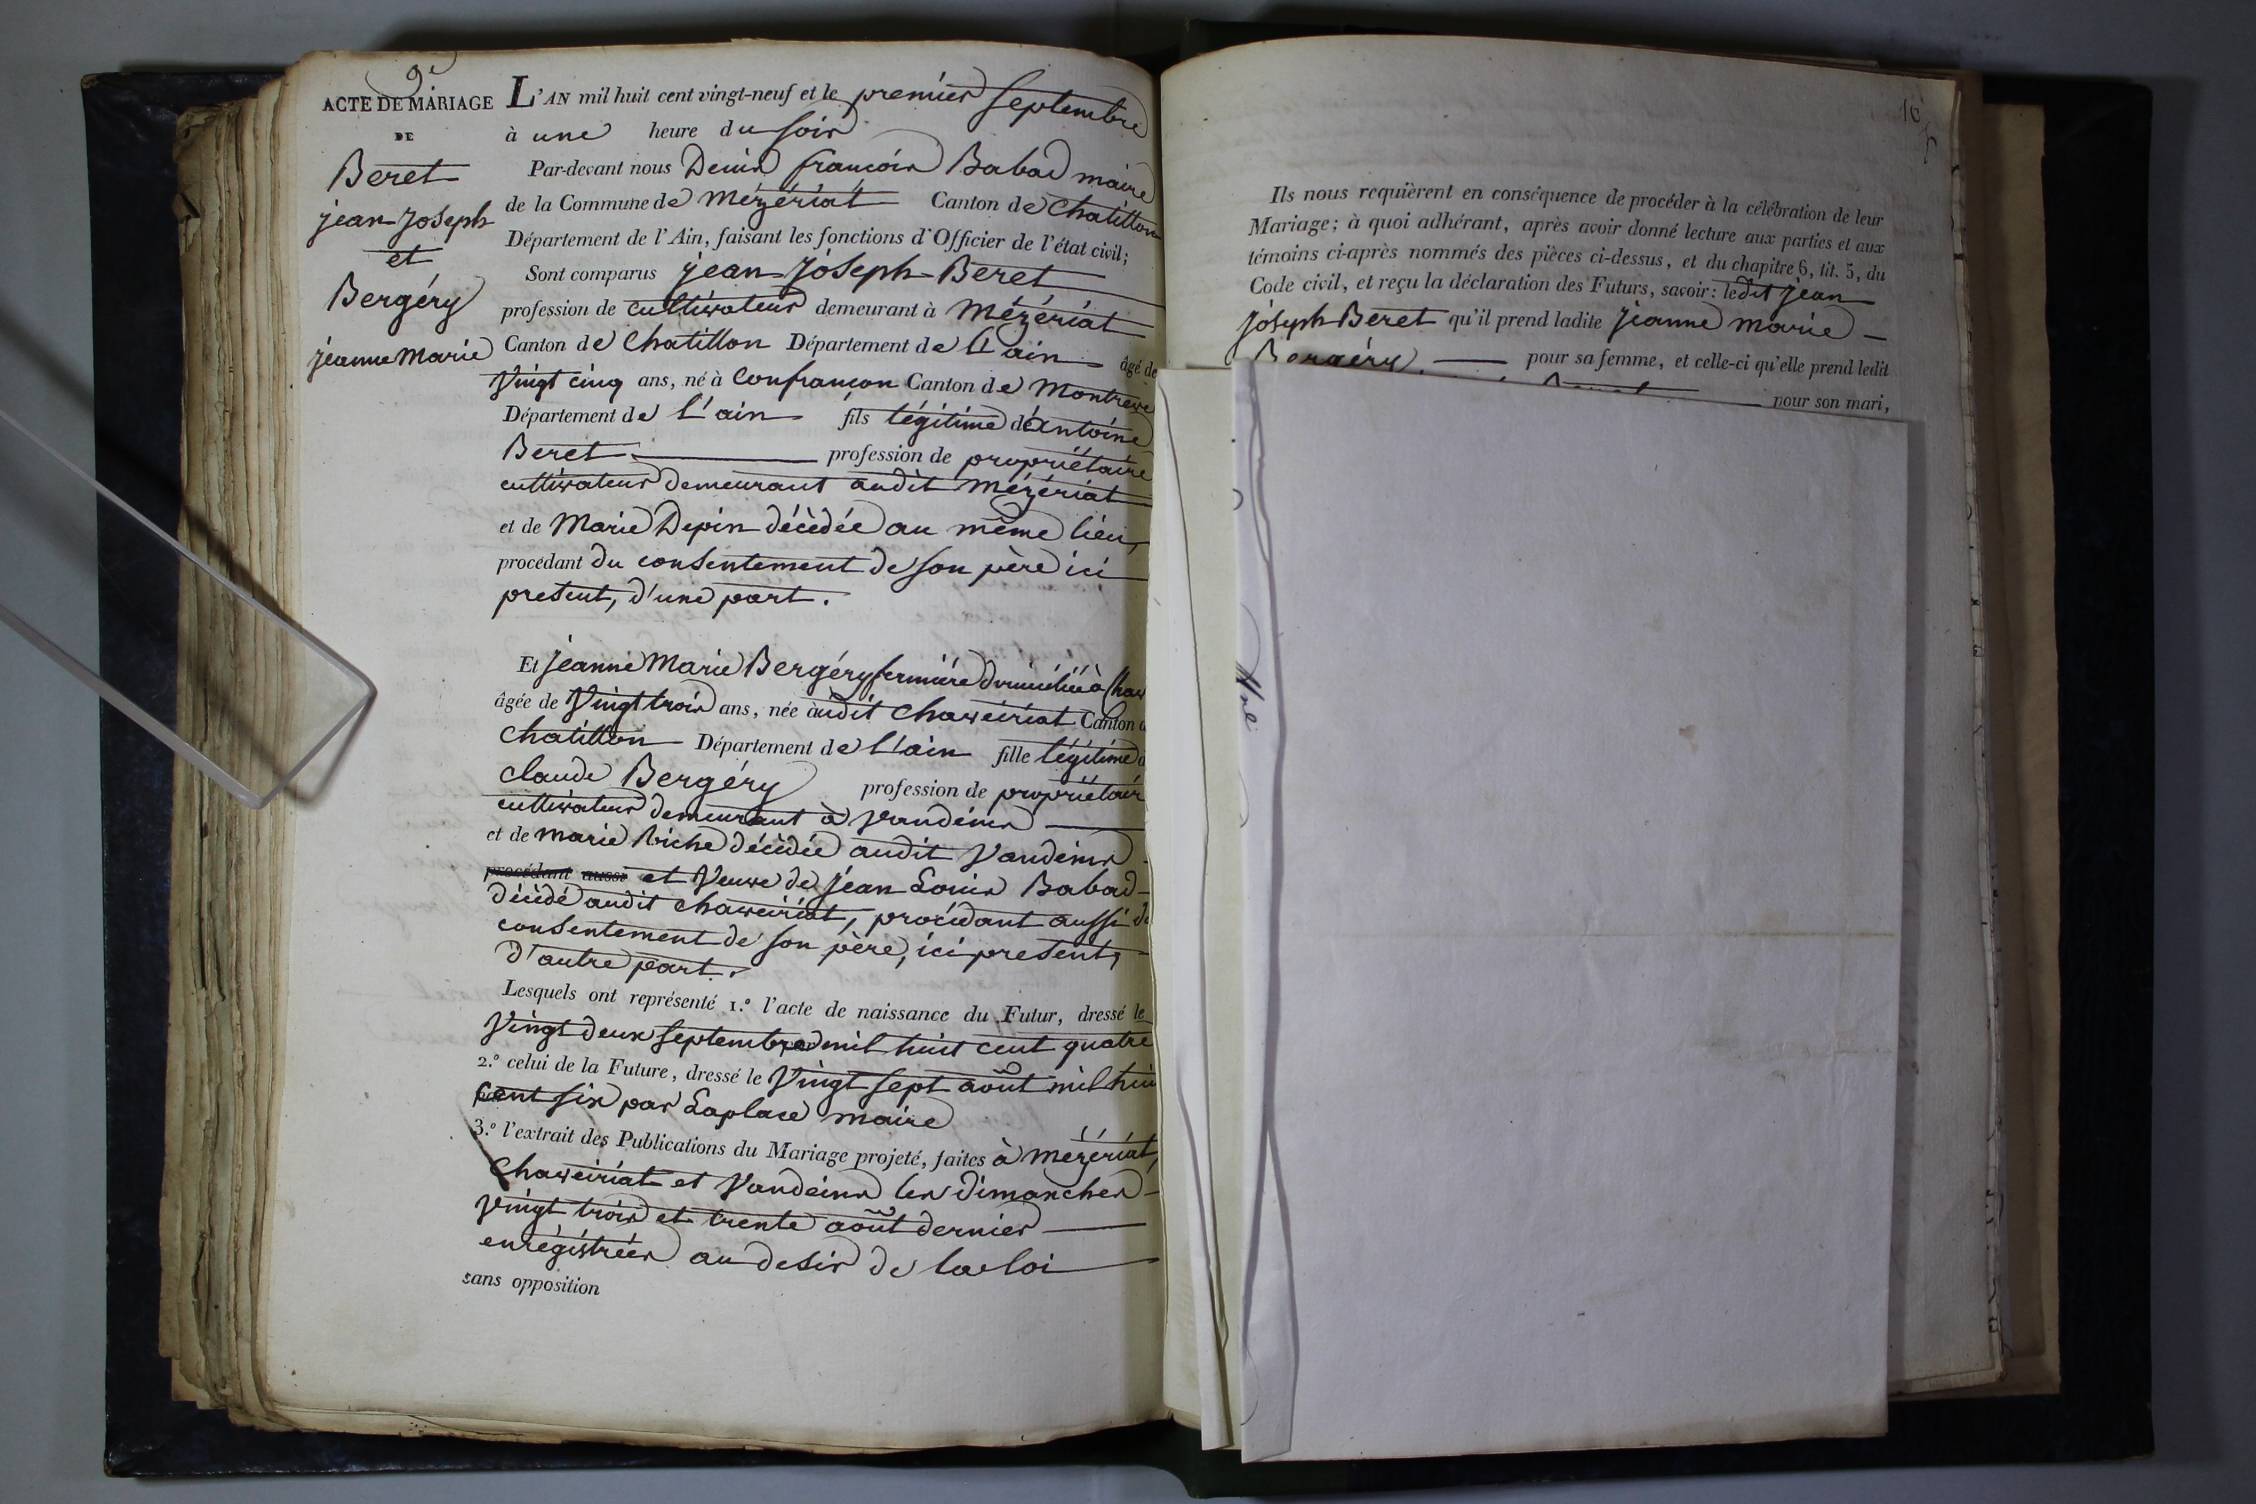 9e
ACTE DE MARIAGE
DE
Beret
jean Joseph
et
Bergéry
jeanne Marie
L'AN mil huit cent vingt-neuf et le premier Septembre
à une heure du soir
Par-devant nous Denis françois Babad maire
de la Commune de Mézériat Canton de Chatillon
Département de l'Ain, faisant les fonctions d'Officier de l'état civil;
Sont comparus jean Joseph Beret
profession de cultivateur demeurant à Mézériat
Canton de Chatillon Département de l'ain âgé de
Vingt cinq ans, né à Confrançon Canton de Montrevel
Département de l'ain fils légitime d'Antoine
Beret profession de propriétaire
cultivateur demeurant audit Mézériat
et de Marie Depin décèdée au même lieu,
procédant du consentement de son père ici
present, d'une part.
Et jeanne Marie Bergéry fermière domiciliée à Chav
âgée de Vingt trois ans, née audit Chaveiriat Canton d
Chatillon Département de l'ain fille légitime d
Claude Bergéry profession de propriétair
cultivateur demeurant à Vandeins
et de Marie Riche décèdée audit Vandeins
procédant aussi et Veuve de jean Louis Babad
décèdé audit Chaveiriat, procédant aussi du
consentement de son père, ici present,
d'autre part.
Lesquels ont représenté 1.° l'acte de naissance du Futur, dressé le
Vingt deux septembre mil huit cent quatre
2.° celui de la Future, dressé le Vingt sept août mil hui
Cent six par Laplace maire
3.° l'extrait des Publications du Mariage projeté, faites à Mézériat,
Chaveiriat et Vandeins les dimanches
Vingt trois et trente août dernier
enrégistrées au desir de la loi
sans opposition
16
Ils nous requièrent en conséquence de procéder à la célébration de leur
Mariage; à quoi adhérant, après avoir donné lecture aux parties et aux
témoins ci-après nommés des pièces ci-dessus, et du chapitre 6, tit. 5, du
Code civil, et reçu la déclaration des Futurs, savoir: ledit jean
Joseph Beret qu'il prend ladite jeanne marie
Bergéry pour sa femme, et celle-ci qu'elle prend ledit
pour son mari,